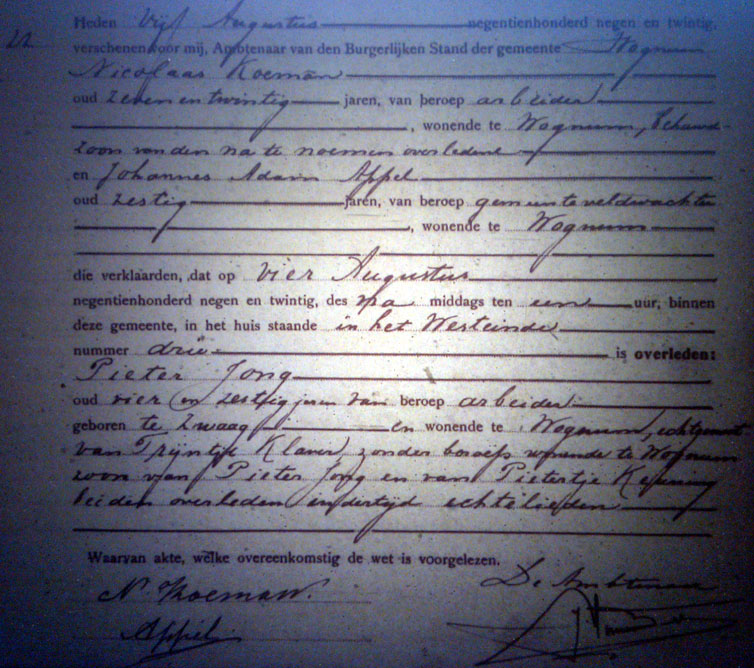 Heden Vijf Augustus negentienhonderd negen en twintig,
22 verschenen voor mij, Ambtenaar van den Burgerlijken Stand der gemeente Wognum
Nicolaas Koeman
oud zeven en twintig jaren, van beroep arbeider
, wonende te Wognum, behuwd-
zoon van den na te noemen overledene
en Johannes Adam Appel
oud zestig jaren, van beroep gemeenteveldwachter
, wonende te Wognum
die verklaarden, dat op vier Augustus
negentienhonderd negen en twintig, des na middags ten een uur, binnen
deze gemeente, in het huis staande in het Westeinde
nummer drie is overleden:
Pieter Jong
oud vier en zestig jaren van beroep arbeider
geboren te Zwaag en wonende te Wognum, echtgenoot
van Trijntje Klaver, zonder beroep wonende te Wognum
zoon van Pieter Jong en van Pietertje
beiden overleden indertijd echtelieden
Waarvan akte, welke overeenkomstig de wet is voorgelezen.
N. Koeman. De Ambtenaar
Appel